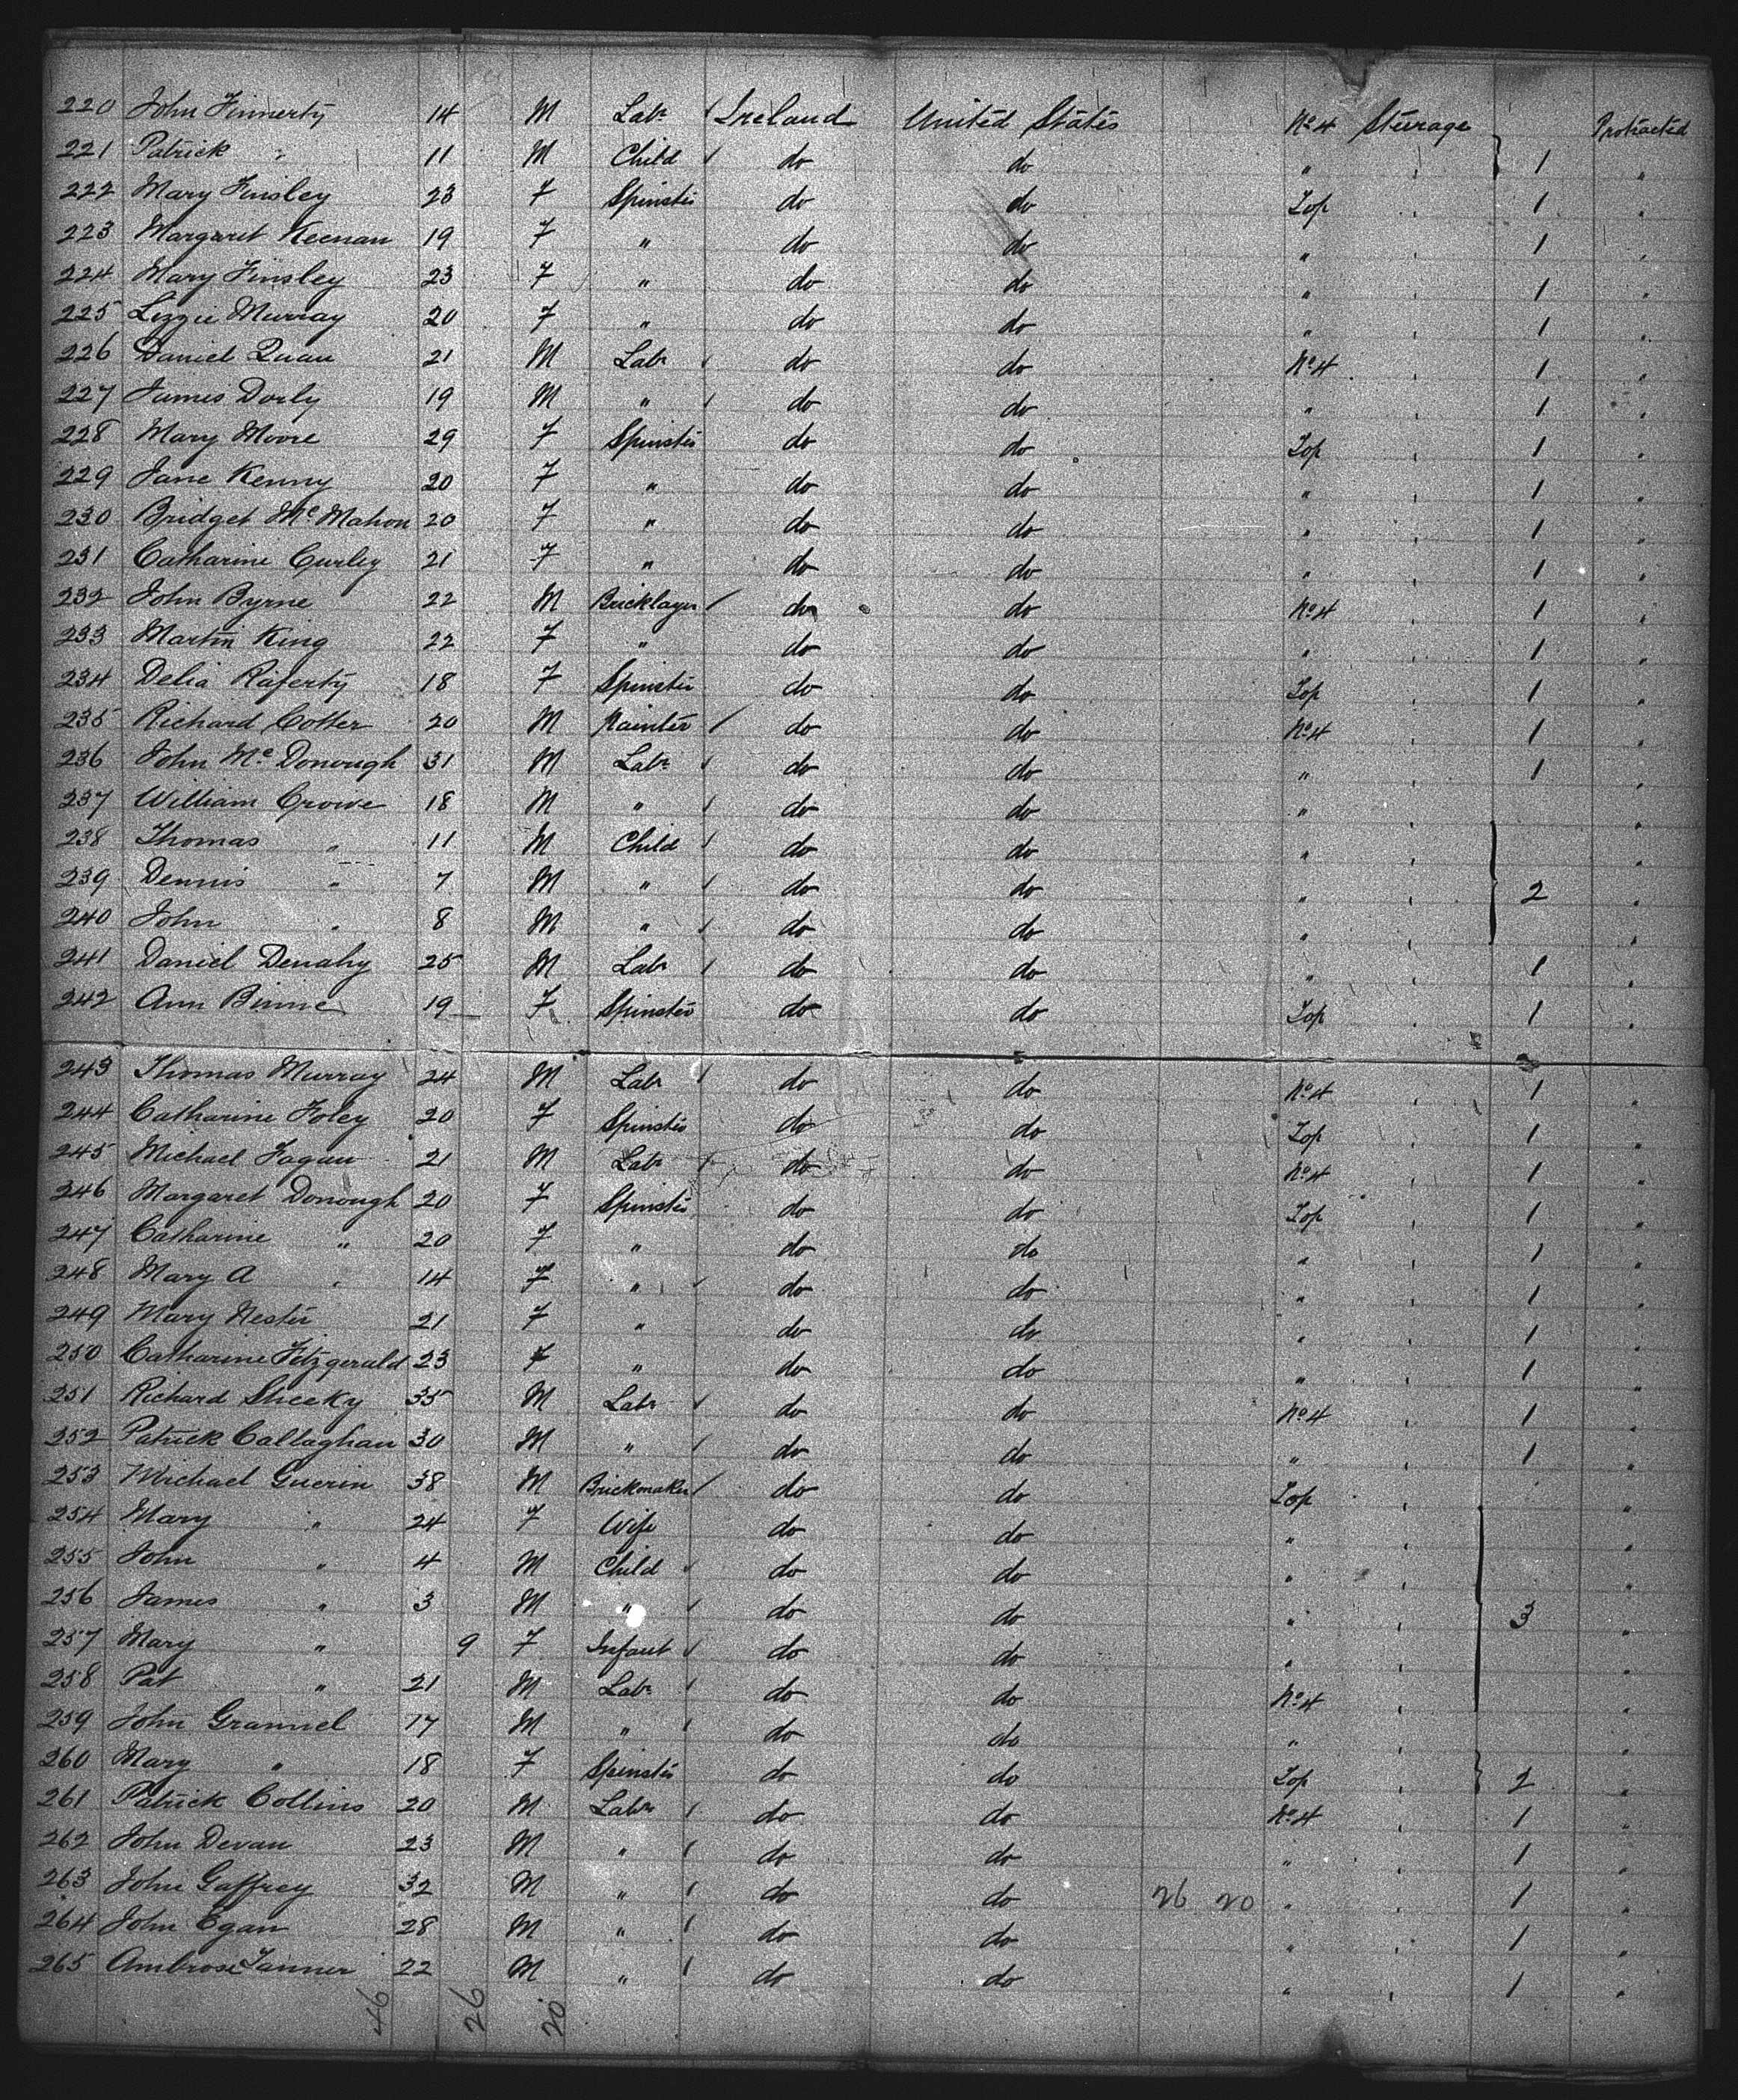 220 John Finnerty 14 M Labr Ireland United States No 4 Steerage Protracted
221 Patrick " 11 M Child do do " 1 "
222 Mary Finsley 23 F Spinster do do Top " 1 "
223 Margaret Keenan 19 F " do do " " 1 "
224 Mary Finsley 23 F " do do " " 1 "
225 Lizzie Murray 20 F " do do " " 1 "
226 Daniel Quan 21 M Labr do do No 4 " 1 "
227 James Dorly 19 M " do do " " 1 "
228 Mary Moore 29 F Spinster do do Top " 1 "
229 Jane Kenny 20 F " do do " " 1 "
230 Bridget Mc Mahon 20 F " do do " " 1 "
231 Catharine Curley 21 F " do do " " 1 "
232 John Byrne 22 M Bricklayer do do No 4 " 1 "
233 Martin King 22 F " do do " " 1 "
234 Delia Raferty 18 F Spinster do do Top " 1 "
235 Richard Cotter 20 M Painter do do No 4 " 1 "
236 John Mc Donough 31 M Labr do do " " 1 "
237 William Crowe 18 M " do do " " "
238 Thomas " 11 M Child do do " " "
239 Dennis " 7 M " do do " " 2 "
240 John " 8 M " do do " " "
241 Daniel Denahy 25 M Labr do do " " 1 "
242 Ann Binne 19 F Spinster do do Top " 1 "
243 Thomas Murray 24 M Labr do do No 4 " 1 "
244 Catharine Foley 20 F Spinster do do Top " 1 "
245 Michael Fagan 21 M Labr do do No 4 " 1 "
246 Margaret Donough 20 F Spinster do do Top " 1 "
247 Catharine " 20 F " do do " " 1 "
248 Mary A " 14 F " do do " " 1 "
249 Mary Nester 21 F " do do " " 1 "
250 Catharine Fitzgerald 23 F " do do " " 1 "
251 Richard Sheeky 35 M Labr do do No 4 " 1 "
252 Patrick Callaghan 30 M " do do " " 1 "
253 Michael Guerin 38 M Brickmaker do do Top " "
254 Mary " 24 F Wife do do " " "
255 John " 4 M Child do do " " "
256 James " 3 M " do do " " 3 "
257 Mary " 9 F Infant do do " " "
258 Pat " 21 M Labr do do No 4 " "
259 John Grannel 17 M " do do " " "
260 Mary " 18 F Spinster do do Top " 2 "
261 Patrick Collins 20 M Labr do do No 4 " 1 "
262 John Devan 23 M " do do " " 1 "
263 John Gaffrey 32 M " do do 26 20 " " 1 "
264 John Egan 28 M " do do " " 1 "
265 Ambrose Tanner 22 M " do do " " 1 "
46 26 20